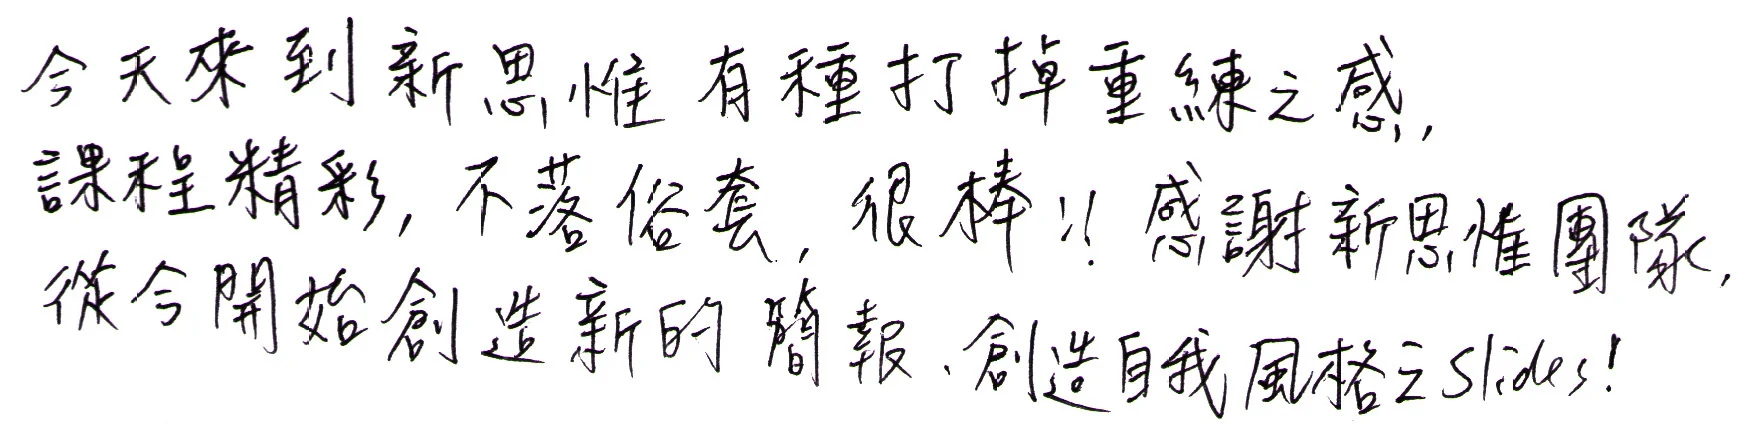 今天來到新思惟有種打掉重練之感,
課程精彩,不落俗套,很棒!!感謝新思惟團隊,
從今開始創造新的簡報、創造自我風格之slides!